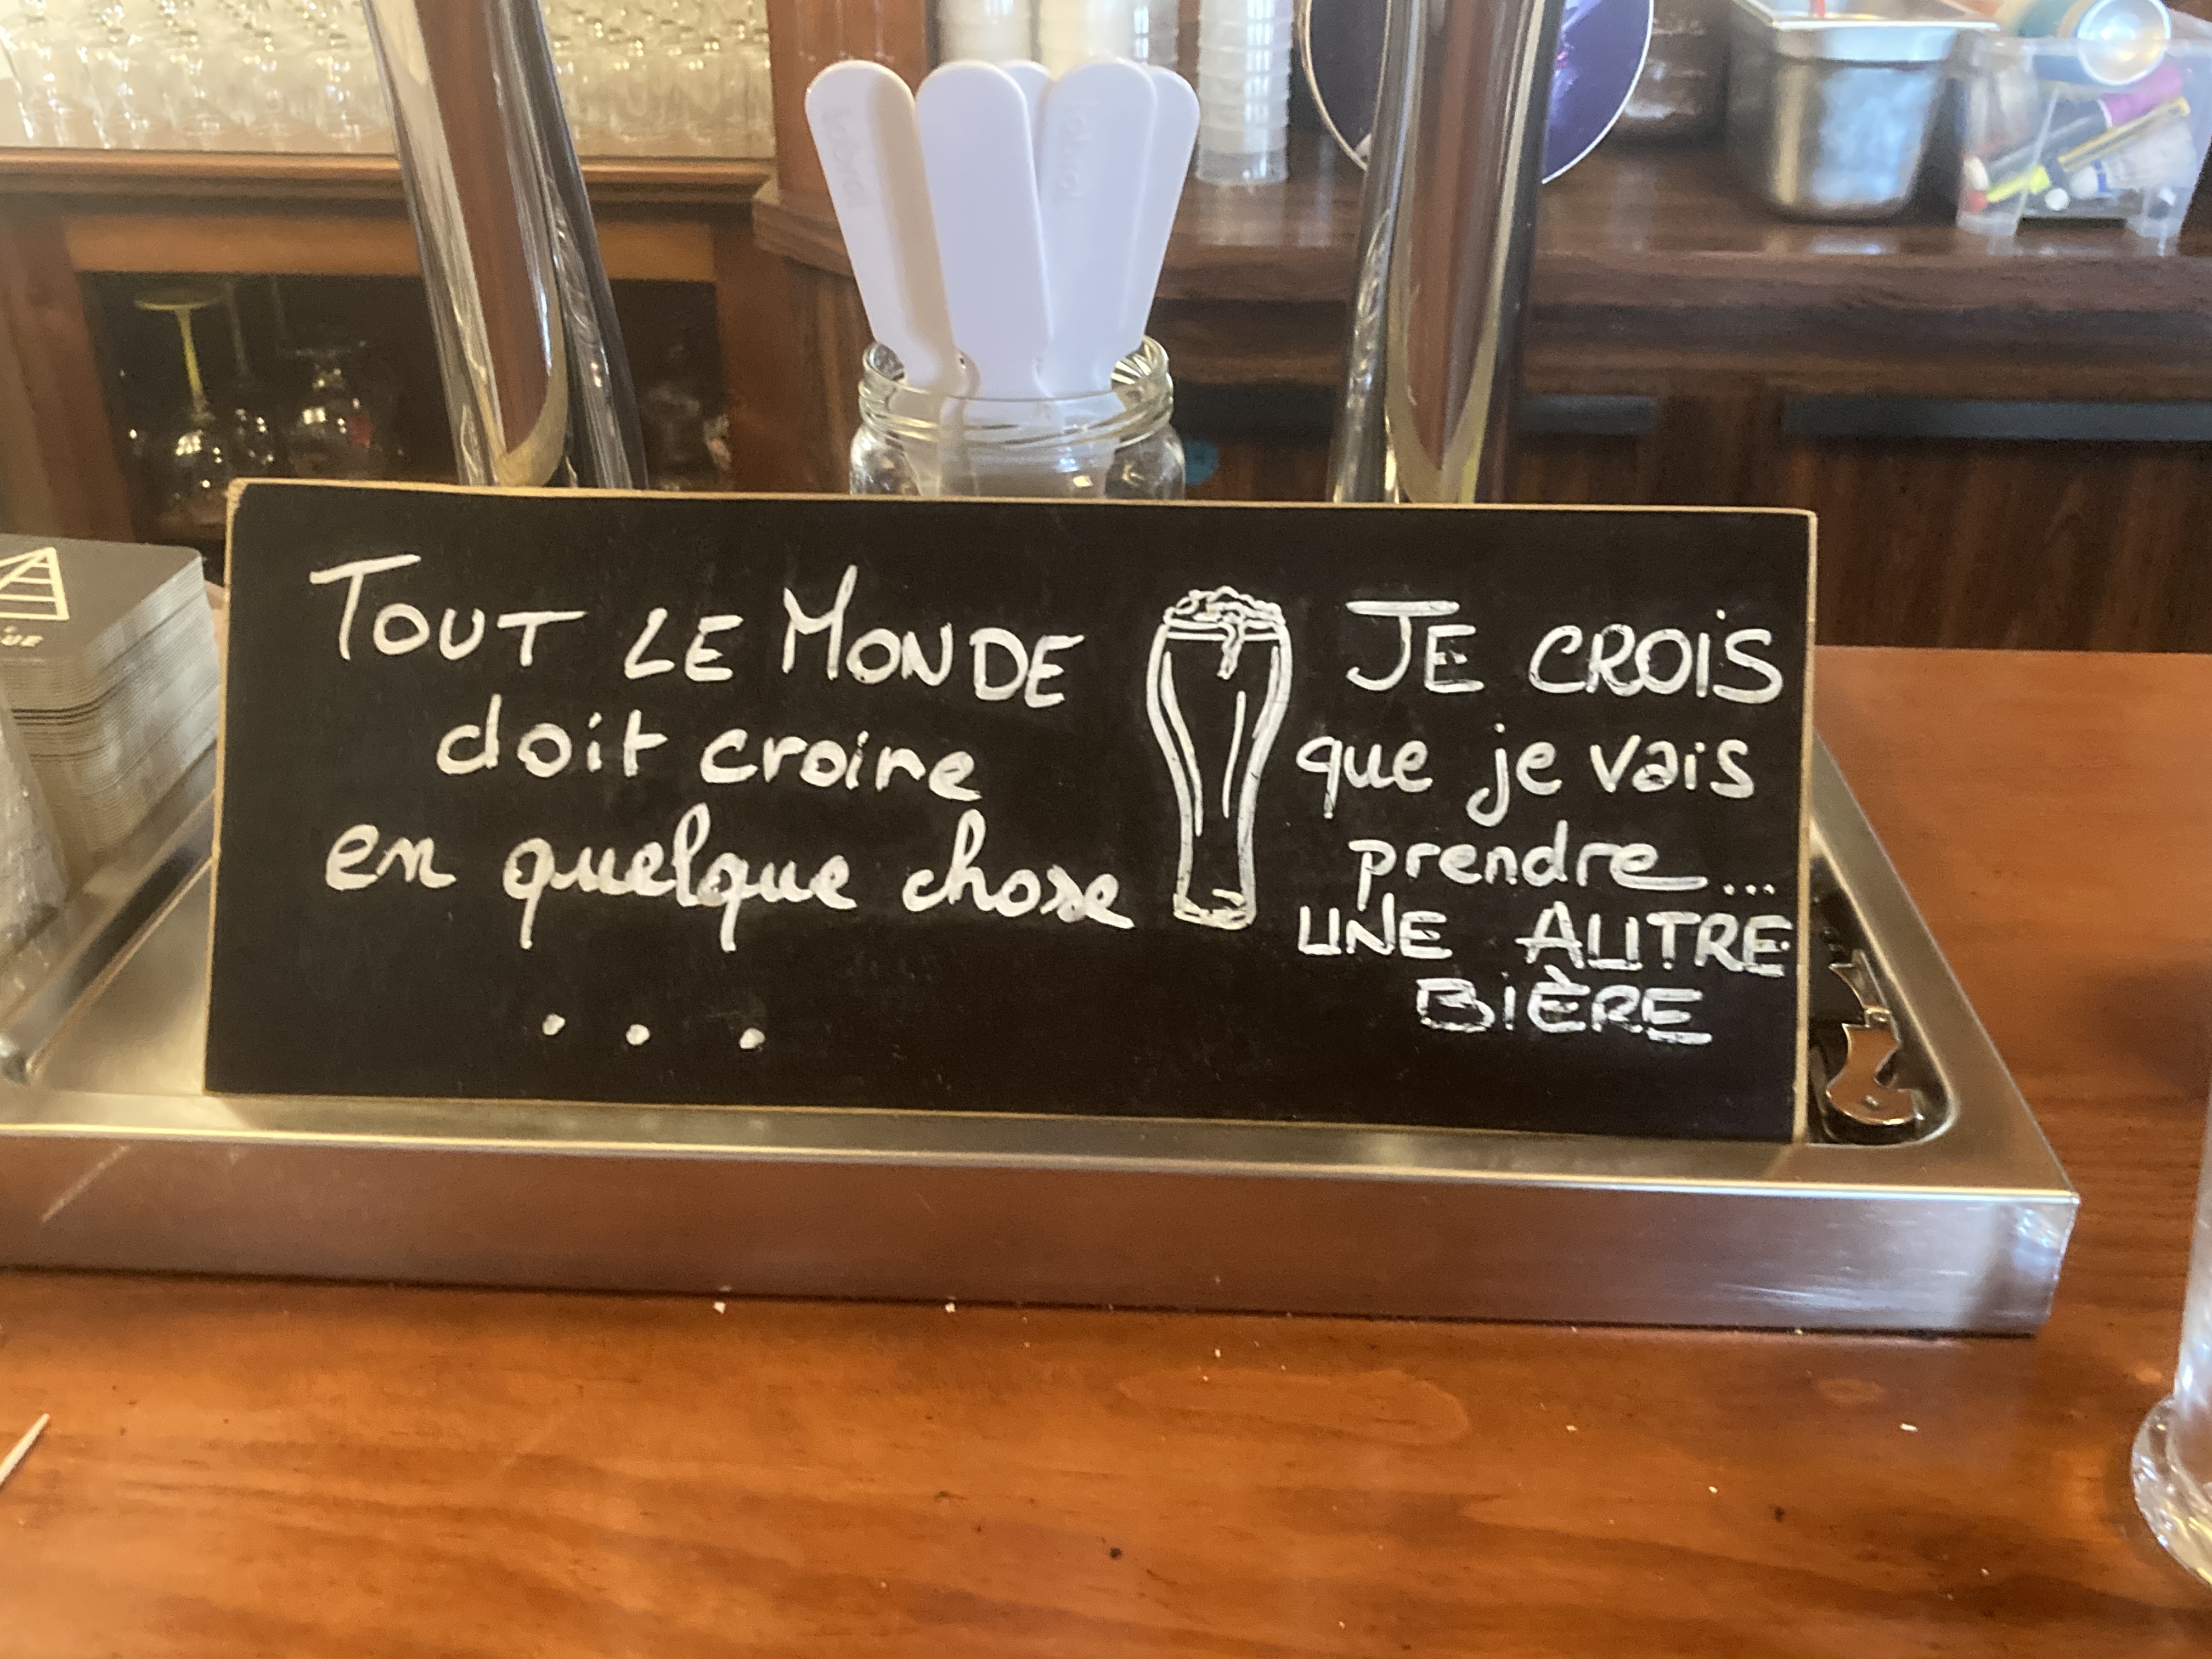 TOUT LE MONDE
doit croire
en quelque chose
. . .
JE CROIS
que je vais
prendre...
UNE AUTRE
BIÈRE